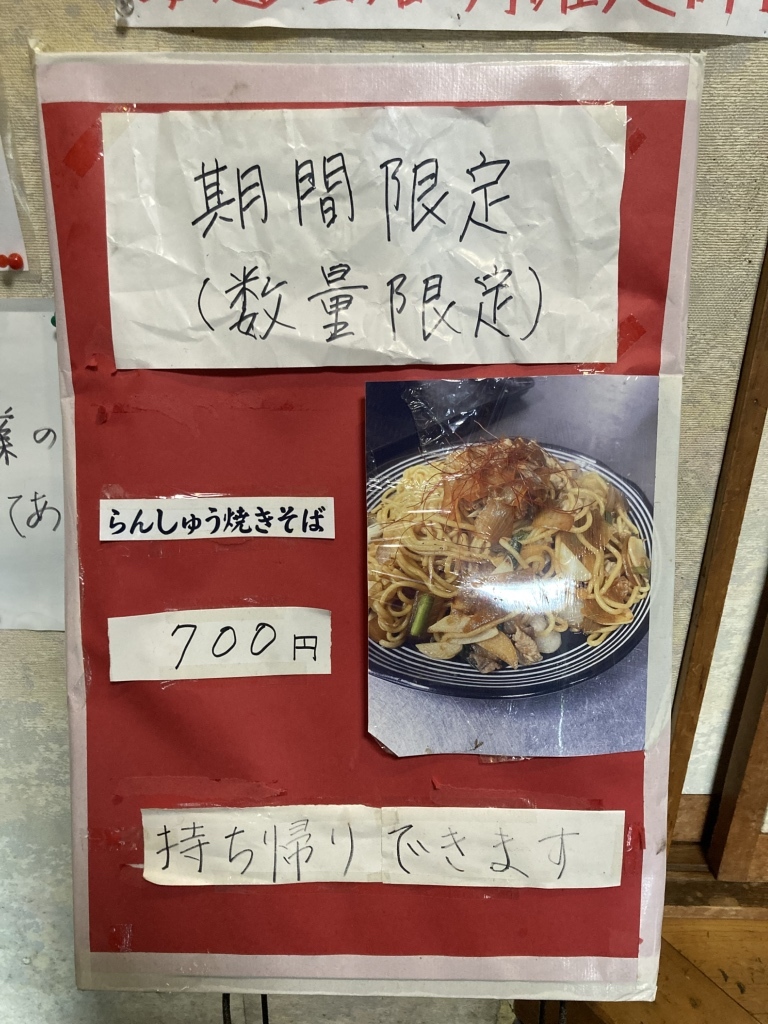 期間限定
(数量限定)
らんしゅう焼きそば
700円
持ち帰りできます
の
てあ